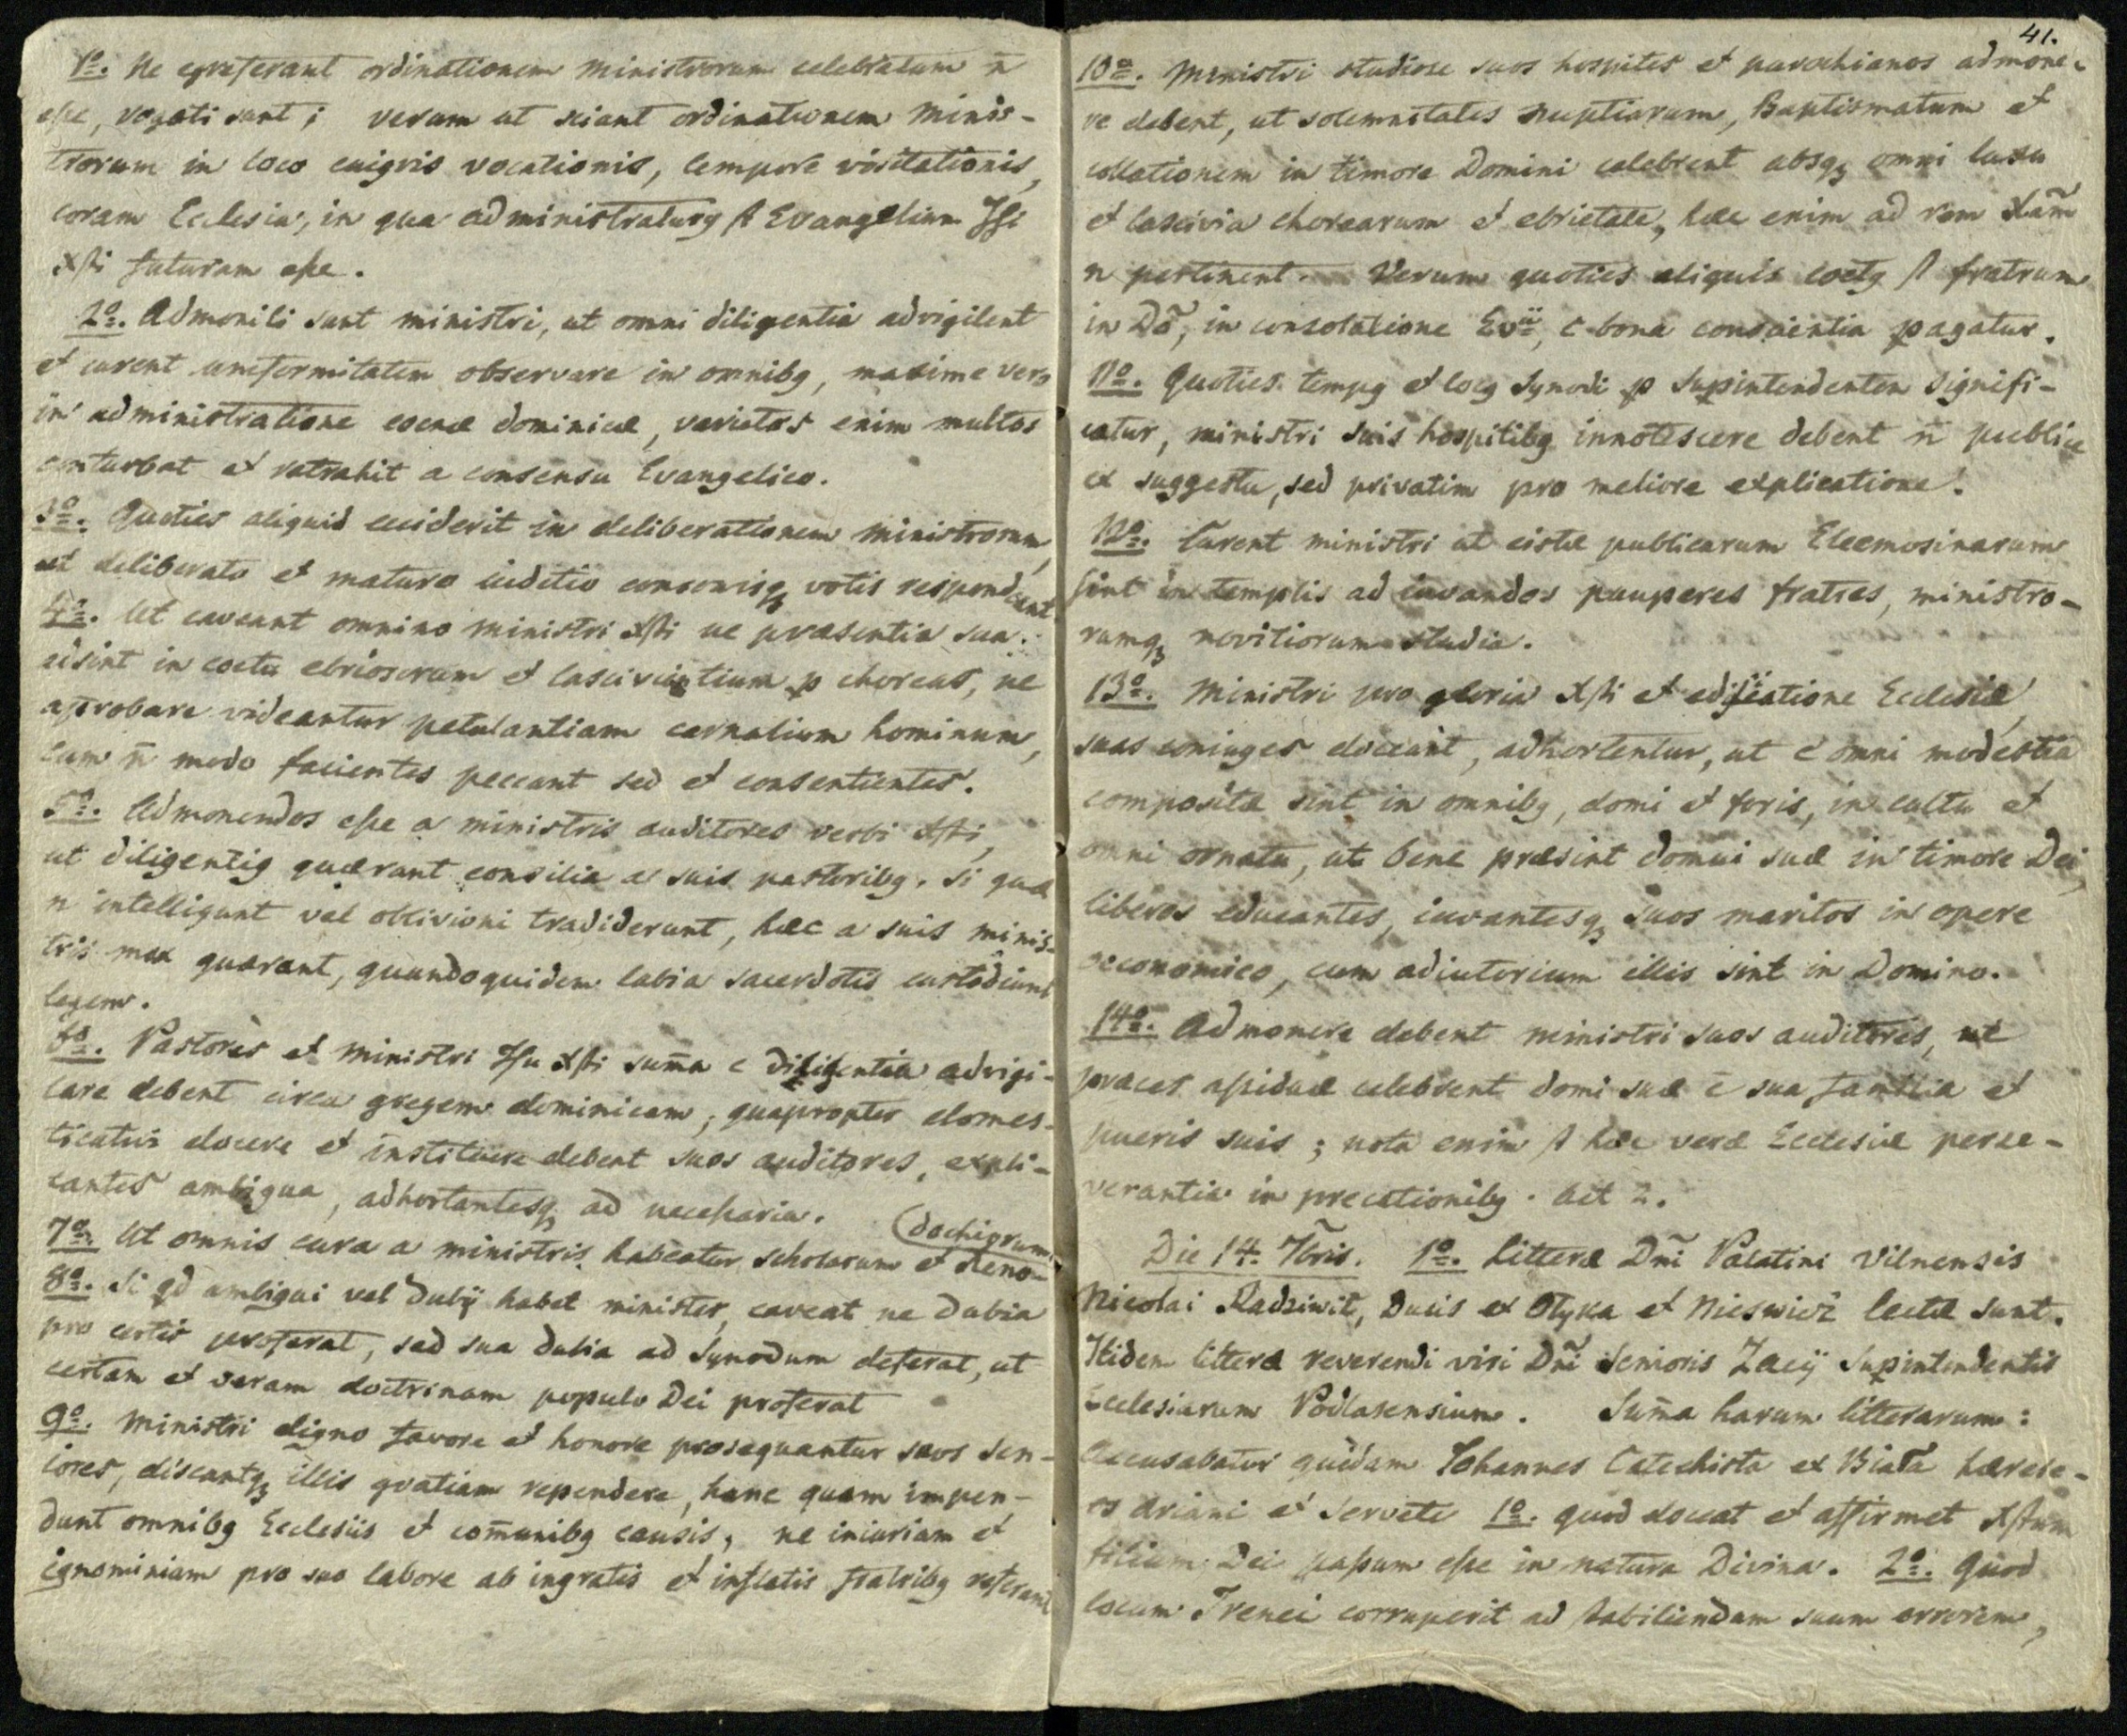 1º. Ne egreferant ordinationem ministrorum celebratam n̄
esse, rogati sunt; verum ut sciant ordinationem Minis-
trorum in loco cuigvis vocationis, tempore visitationis,
coram Ecclesia, in qua administraturg st Evangelium Jesu
Xsti futuram esse.
2º. Admoniti sunt ministri, ut omni diligentia advigilent
et curent uniformitatem observare in omnibg, maxime vero
in administratione coenæ dominicæ, varietas enim multos
conturbat et retrahit a consensu Evangelico.
3º. Quoties aliquid ceciderit in deliberationem ministrorum,
ut deliberato et maturo iuditio consonisq votis respondeant
4º. Ut caveant omnino ministri Xsti ne præsentia sua
adsint in coetu ebriosorum et lascivientium p choreas, ne
aprobare videantur petulantiam carnalium hominum,
cum n̄ modo facientes peccant sed et consentientes.
5º. Admonendos esse a ministris auditores verbi Xsti,
ut diligentig quærant consilia a suis pastoribg. Si quæ
n intelligunt vel oblivioni tradiderunt, hæc a suis minis-
tris mox quærant, quandoquidem labia sacerdotis custodiunt
legem.
6º. Pastores et ministri Jsu Xsti sum̄a c diligentia advigi-
lare debent circa gregem dominicam, quapropter domes-
ticatim docere et instituere debent suos auditores, expli-
cantes ambigua, adhortantesq ad necessaria.
7º. Ut omnis cura a ministris habeatur scholarum et Xeno-
(dochiorum.
8º. Si qd ambigui vel dubij habet minister, caveat ne dubia
pro certis proferat, sed sua dubia ad Synodum deferat, ut
certam et veram doctrinam populo Dei proferat
9º. Ministri digno favore et honore prosequantur suos Sen-
iores, discantq illis gratiam rependere, hanc quam impen-
dunt omnibg Ecclesiis et com̄unibg causis, ne iniuriam et
ignominiam pro suo labore ab ingratis et inflatis fratribg referant
41.
10º. Ministri studiose suos hospites et parochianos admone-
re debent, ut solemnitates nuptiarum, Baptismatum et
collationem in timore Domini celebrent absq omni luxu
et lascivia chorearum et ebrietate, hæc enim ad rem Xnam̃
n pertinent. Verum quoties aliquis coetg st fratrum
in Dõ, in consolatione Evii, c bona conscientia pagatur.
11º. Quoties tempg et locg Synodi p Supintendentem signifi-
catur, ministri suis hospitibg innotescere debent n̄ publice
ex suggestu, sed privatim pro meliore explicatione.
12º. Curent ministri ut cistæ publicarum Eleemosinarum
sint in templis ad iuvandos pauperes fratres, ministro-
rumq novitiorum studia.
13º. Ministri pro gloria Xsti et edificatione Ecclesiæ,
suas coniuges doceant, adhortentur, ut c omni modestia
compositæ sint in omnibg, domi et foris, in cultu et
omni ornatu, ut bene præsint domui suæ in timore Dei,
liberos educantes, iuvantesq suos maritos in opere
oeconomico, cum adiutorium illis sint in Domino.
14º. Admonere debent ministri suos auditores, ut
præces assiduæ celebrent domi suæ c̄ sua familia et
pueris suis; nota enim st hæc veræ Ecclesiæ perse-
verantia in precationibg. Act 2.
Die 14. 7bris. 1º. Litteræ Dñi Palatini Vilnensis
Nicolai Radziwił, Ducis ex Ołyka et Nieswież lectæ sunt.
Itidem litteræ reverendi viri Dñi Senioris Zacij Supintendentis
Ecclesiarum Podlasensium. Sum̄a harum litterarum:
Accusabatur quidam Iohannes Catechista ex Biała hærese-
os Ariani et Serveti 1º. quod doceat et affirmet Xstum
filium Dei passum esse in natura Divina. 2º. Quod
locum Irenei corruperit ad stabiliendam suum errorem,